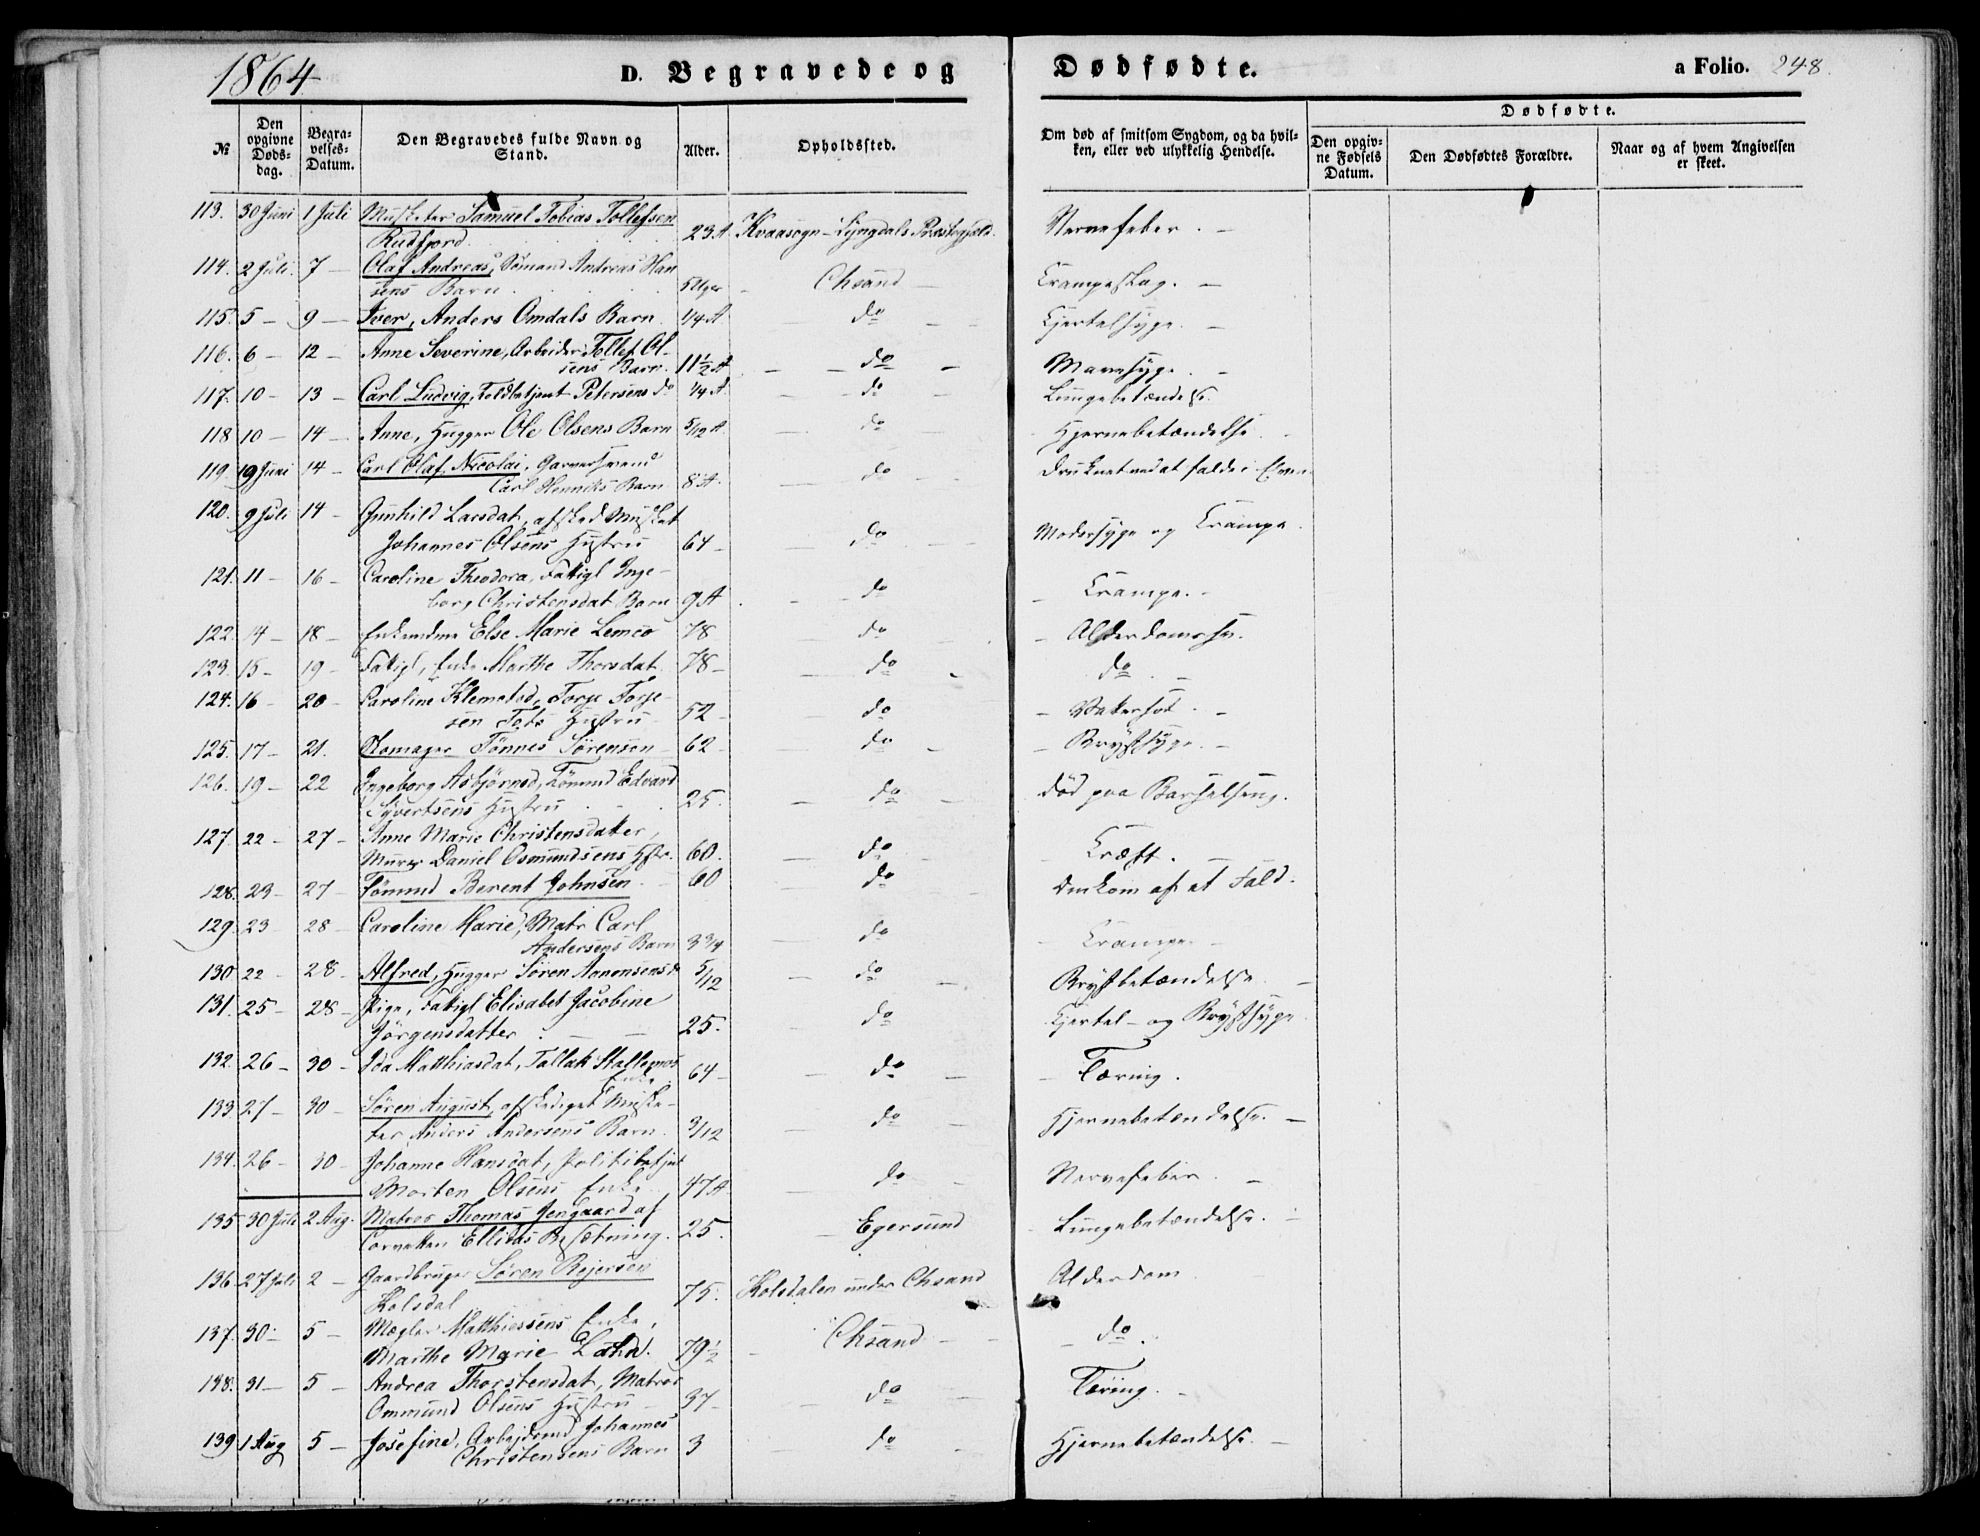 1864
D. Begravede og Dødfødte.
a Folio. 248.
№
Den opgivne Døds-dag.
Begra-velses-Datum.
Den Begravedes fulde Navn og Stand.
Alder.
Opholdssted.
Om død af smitsom Sygdom, og da hvil-ken, eller ved ulykkelig Hendelse.
Dødfødte.
Den opgiv-ne Fødsels Datum.
Den Dødfødtes Forældre.
Naar og af hvem Angivelsen er skeet.
113. 30 Juni 1 Juli Musketer Samuel Tobias Tollefsen
Rudfjord 23 A. Kvaasogn - Lyngdals Præstegjæld. Nervefeber. -
114. 2 Juli. 7 - Olaf Andreas, Sømand Andreas Han
sens Barn 5 Uger - Chsand - Crampeslag. -
115. 5 - 9 - Iver, Anders Omdals Barn 1/4 A - do - Kjertelsyge. -
116. 6 - 12 - Anne Severine, Arbeider Tollef Ol-
sens Barn. 11 1/2 A - do - Mavesyge. -
117. 10 - 13 - Carl Ludvig, Toldbetjent Petersens do 1/4 A. - do - Lungebetændelse.
118 10 - 14 - Anne, Hugger Ole Olsens Barn 5/12 A. - do - Hjernebetændelse. -
119. 19 Juni 14 - Carl Olaf Nicolai, Garversvend
Carl Henriks Barn 8 A. - do - Druknet ved at falde i Elven
120. 9 Juli 14 - Gunhild Larsdat, afsked Musket
Johannes Olsens Hustru 64 - - do - Modersyge og Krampe.
121. 11 - 16 - Caroline Theodora, Fattigl Inge-
borg Christensdat Barn 9 A. - do - Crampe. -
122. 14 - 18 - Enkemdme Else Marie Lemco 78 - do - Alderdomssv.
123. 15 - 19 - Fattigl, Enke Marthe Thorsdat 78 - - do - do -
124. 16 - 20 - Caroline Klemetsd, Torje Torje-
sen Hustru 52 - - do - Vatersot. -
125. 17 - 21. Skomager Tönnes Sörensen - 62 - - do - Brystsyge. -
126. 19 - 22 Ingeborg Asbjörnsd, Sömand Edvard
Syvertsens Hustru 25. - do - død paa Barselseng.
127. 22 - 27 - Anne Marie Christensdatter,
Murer Daniel Osmundsens Hstr. 60. - do - Kræft. -
128. 23 - 27 - Sömand Berent Johnsen 60 - do - Omkom af et Fald.
129. 23 28 - Caroline Marie, Matr Carl
Andersens Barn 3 3/4 - do - Crampe. -
130 22 - 28 - Alfred, Hugger Sören Aanonsens do 5/12 - do - Brystbetændelse. -
131. 25 - 28 - Pige, Fattigl Elisabet Jacobine
Jörgensdatter - 25. - do Kjertel- og Brystsyge.
132. 26 - 30 - Ida Matthiasdat, Tallak
Enke 64 - - do - Tæring.
133 27 - 30 - Sören August, afskediget Muske-
ter Anders Andersens Barn. 3/12 - do - Hjernebetændelse. -
134. 26 - 30 - Johanne Hansdat, Politibetjent
Morten Olsens Enke 47 A. - do - Nervefeber. -
135 30 Juli 2 Aug. Matros Thomas Jengaard af
Corvetten Ellidas Besætning. 25. Egersund - Lungebetændelse. -
136 27 Juli 2 - Gaardbruger Sören Rejersen
Kolsdal 75. Kolsdalen under Chsand Alderdom
137. 30 - 5 - Mægler Matthiessens Enke,
Marthe Marie 79 1/2 - Chsand - - do.
138. 31 - 5 - Andrea Thorstensdat, Matros
Ommund Olsens Hustru - 37 - do - Tæring. -
139 1 Aug 5 - Josefine, Arbejdsmd Johannes
Christensens Barn 3 - do - Hjernebetændelse. -